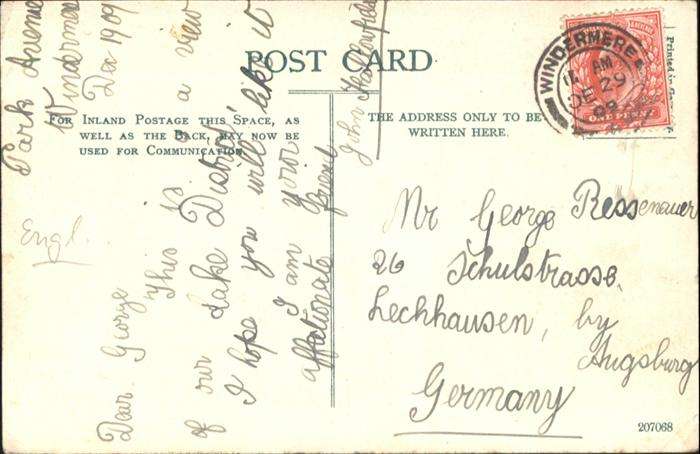 POST CARD
FOR INLAND POSTAGE THIS SPACE, AS
WELL AS THE BACK, MAY NOW BE
USED FOR COMMUNICATION.
THE ADDRESS ONLY TO BE
WRITTEN HERE.
Park Avenue
Windermere
Dec 1909
Dear George
This is a view
of our Lake District
I hope you will like it
I am your
affationate friend
John
Engl.
Mr George Ressenauer
26 Schulstrasse.
Lechhausen, by
Augsburg
Germany
WINDERMERE
11 AM
DE 29
09
ONE PENNY
Printed in
207068